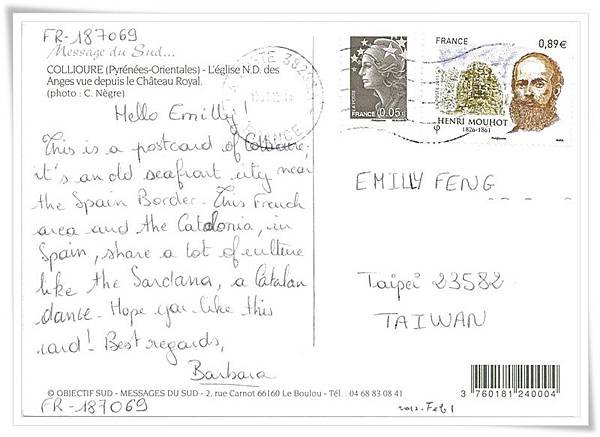 FR-187069
Message du Sud...
COLLIOURE (Pyrénées-Orientales) - L'église N.D. des
Anges vue depuis le Château Royal.
(photo : C. Nègre)
Hello Emilly!
This is a postcard of Collioure,
it's an old seafront city near
the Spain Border. This French
area and the Catalonia, in
Spain, share a lot of culture
like the Sardana, a Catalan
dance. Hope you like this
card! Best regards,
Barbara
© OBJECTIF SUD - MESSAGES DU SUD - 2, rue Carnot 66160 Le Boulou - Tél. : 04 68 83 08 41
FR-187069
FRANCE
0,05€
FRANCE
0,89€
HENRI MOUHOT
1826-1861
EMILLY FENG
Taipei 23582
TAIWAN
3 760181 240004
2012. Feb 1